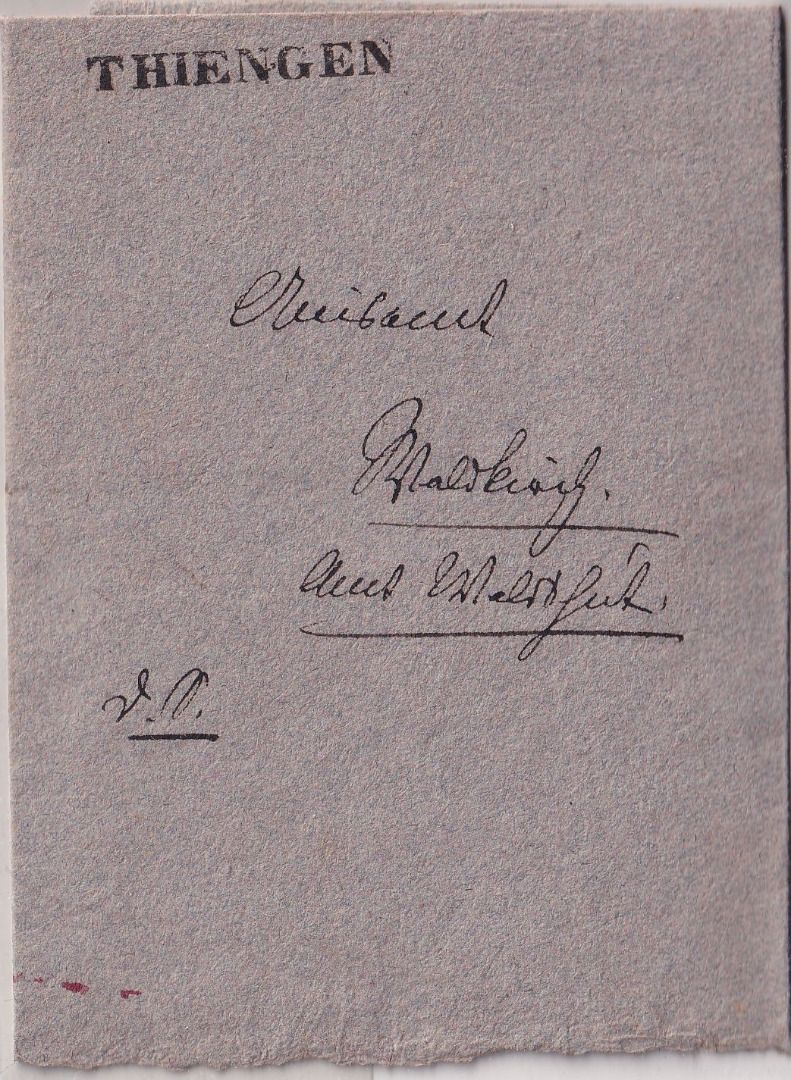 THIENGEN
Waldkirch.
Amt Waldshut.
D. S.